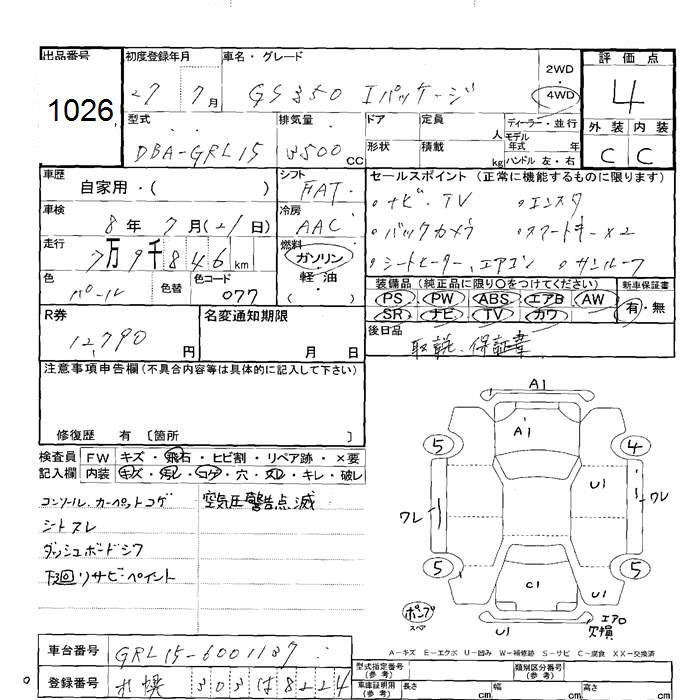 出品番号 初度登録年月 車名・グレード 評価点
1026 27 7月 GS350 Iパッケージ 2WD 4WD 4
型式 排気量 ドア 定員 人 ディーラー・並行 外装 内装
DBA-GRL15 3500 CC 形状 積載 kg モデル年式 年 ハンドル 左・右 C C
車歴 自家用・( ) シフト FAT セールスポイント (正常に機能するものに限ります)
車検 8年 7月(21日) 冷房 AAC ・ナビ・TV ・エンスタ
・バックカメラ ・スマートキー×2
走行 7万9千846km 燃料 ガソリン・軽油・( ) ・シートヒーター、エアコン ・サンルーフ
色 パール 色替 色コード 077 装備品 (純正品に限り○をつけてください) 新車保証書
PS PW ABS エアB AW 有・無
SR ナビ TV カワ
R券 12,790円 名変通知期限 月 日 後日品 取説、保証書
注意事項申告欄(不具合内容等は具体的に記入して下さい)
修復歴 有 〔箇所 〕
検査員 FW キズ・飛石・ヒビ割・リペア跡・×要
記入欄 内装 キズ・汚レ・コゲ・穴・スレ・キレ・破レ
コンソール、カーペットコゲ 空気圧警告点滅
シートスレ
ダッシュボードシワ
下回リサビ・ペイント
A1
A1
5 4
U1
ワレ ワレ
5 5
C1 U1
ポンプ スペア
U1 エアロ欠損
A-キズ E-エクボ U-凹み W-補修跡 S-サビ C-腐食 XX-交換済
車台番号 GRL15-6001137 型式指定番号 (参考) 類別区分番号 (参考)
登録番号 札幌 303は8224 車庫証明用 (参考) 長さ cm 幅 cm 高さ cm